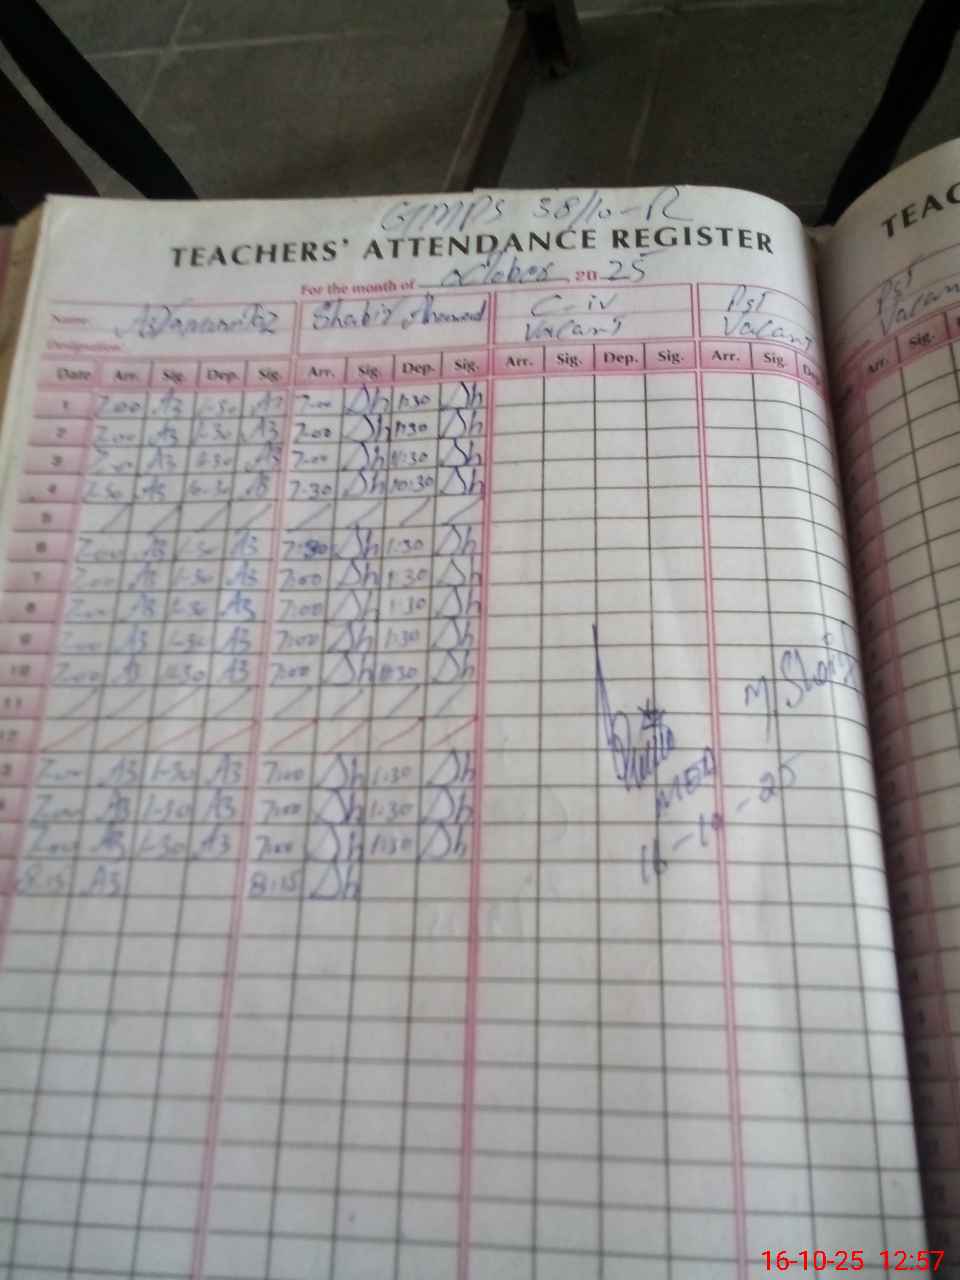 GMPS 38/10-R
TEACHERS' ATTENDANCE REGISTER
For the month of October 20 25
Name Shabir Ahmad C-iv Pst
Designation Vacant Vacant
Date Arr. Sig. Dep. Sig. Arr. Sig. Dep. Sig. Arr. Sig. Dep. Sig. Arr. Sig. Dep.
1 7:00 A3 1-30 A3 7:00 Sh 1:30 Sh
2 7:00 A3 1-30 A3 7:00 Sh 1:30 Sh
3 7:00 A3 A3 7:00 Sh Sh
4 7:30 A3 A3 7:30 Sh 10:30 Sh
5
6 7:00 A3 1-30 A3 Sh 1:30 Sh
7 7:00 A3 1-30 A3 7:00 Sh 1:30 Sh
8 7:00 A3 1-30 A3 7:00 Sh 1:30 Sh
9 7:00 A3 1-30 A3 7:00 Sh 1:30 Sh
10 7:00 A3 A3 7:00 Sh Sh
11
12
3 7:00 A3 1-30 A3 7:00 Sh 1:30 Sh
4 7:00 A3 1-30 A3 7:00 Sh 1:30 Sh
7:00 A3 1-30 A3 7:00 Sh 1:30 Sh
8:15 A3 8:15 Sh
16-10-25
TEAC
Pst
Vacan
Arr. Sig.
16-10-25 12:57